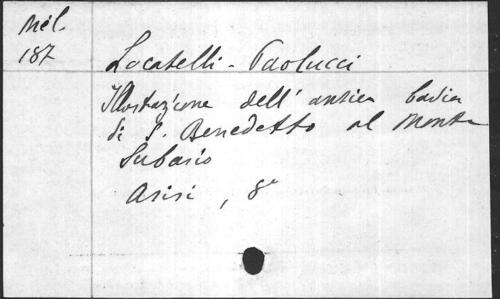 Mél.
187
Locatelli - Paolucci
Illustrazione dell' antica badia
di S. Benedetto al Monte
Subasio
Asisi, 8°